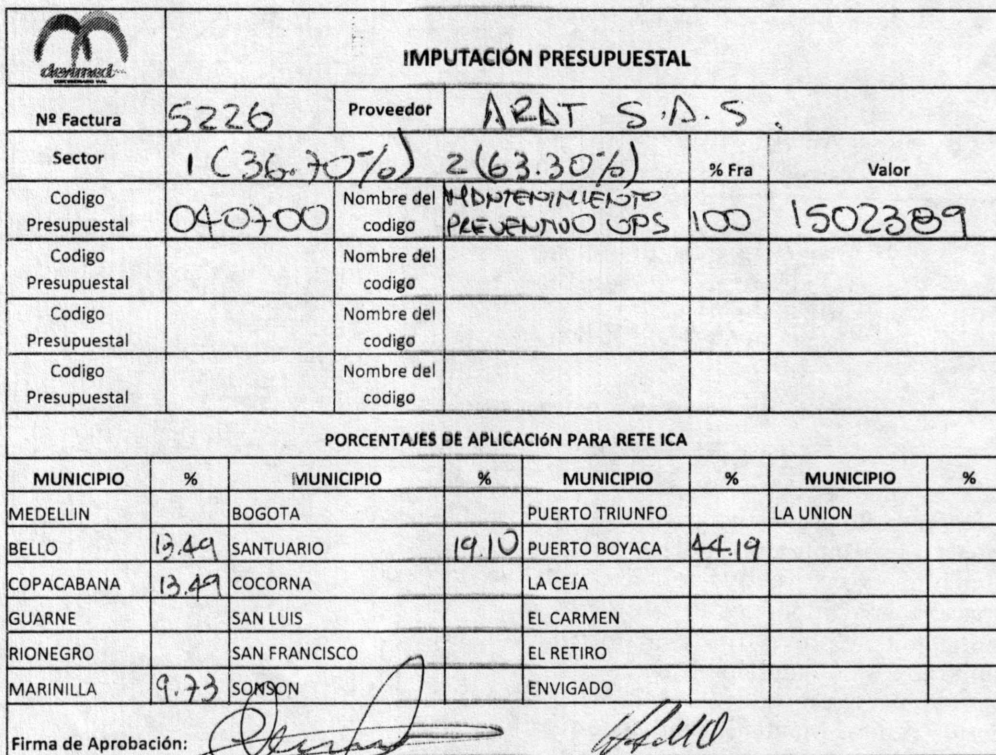 devimed
IMPUTACIÓN PRESUPUESTAL
Nº Factura 5226 Proveedor ARAT S.A.S.
Sector 1 (36.70%) 2 (63.30%) % Fra Valor
Codigo Presupuestal 040700 Nombre del codigo MANTENIMIENTO PREVENTIVO UPS 100 1502389
Codigo Presupuestal Nombre del codigo
Codigo Presupuestal Nombre del codigo
Codigo Presupuestal Nombre del codigo
PORCENTAJES DE APLICACIÓN PARA RETE ICA
MUNICIPIO % MUNICIPIO % MUNICIPIO % MUNICIPIO %
MEDELLIN BOGOTA PUERTO TRIUNFO LA UNION
BELLO 13.49 SANTUARIO 19.10 PUERTO BOYACA 44.19
COPACABANA 13.49 COCORNA LA CEJA
GUARNE SAN LUIS EL CARMEN
RIONEGRO SAN FRANCISCO EL RETIRO
MARINILLA 9.73 SONSON ENVIGADO
Firma de Aprobación: